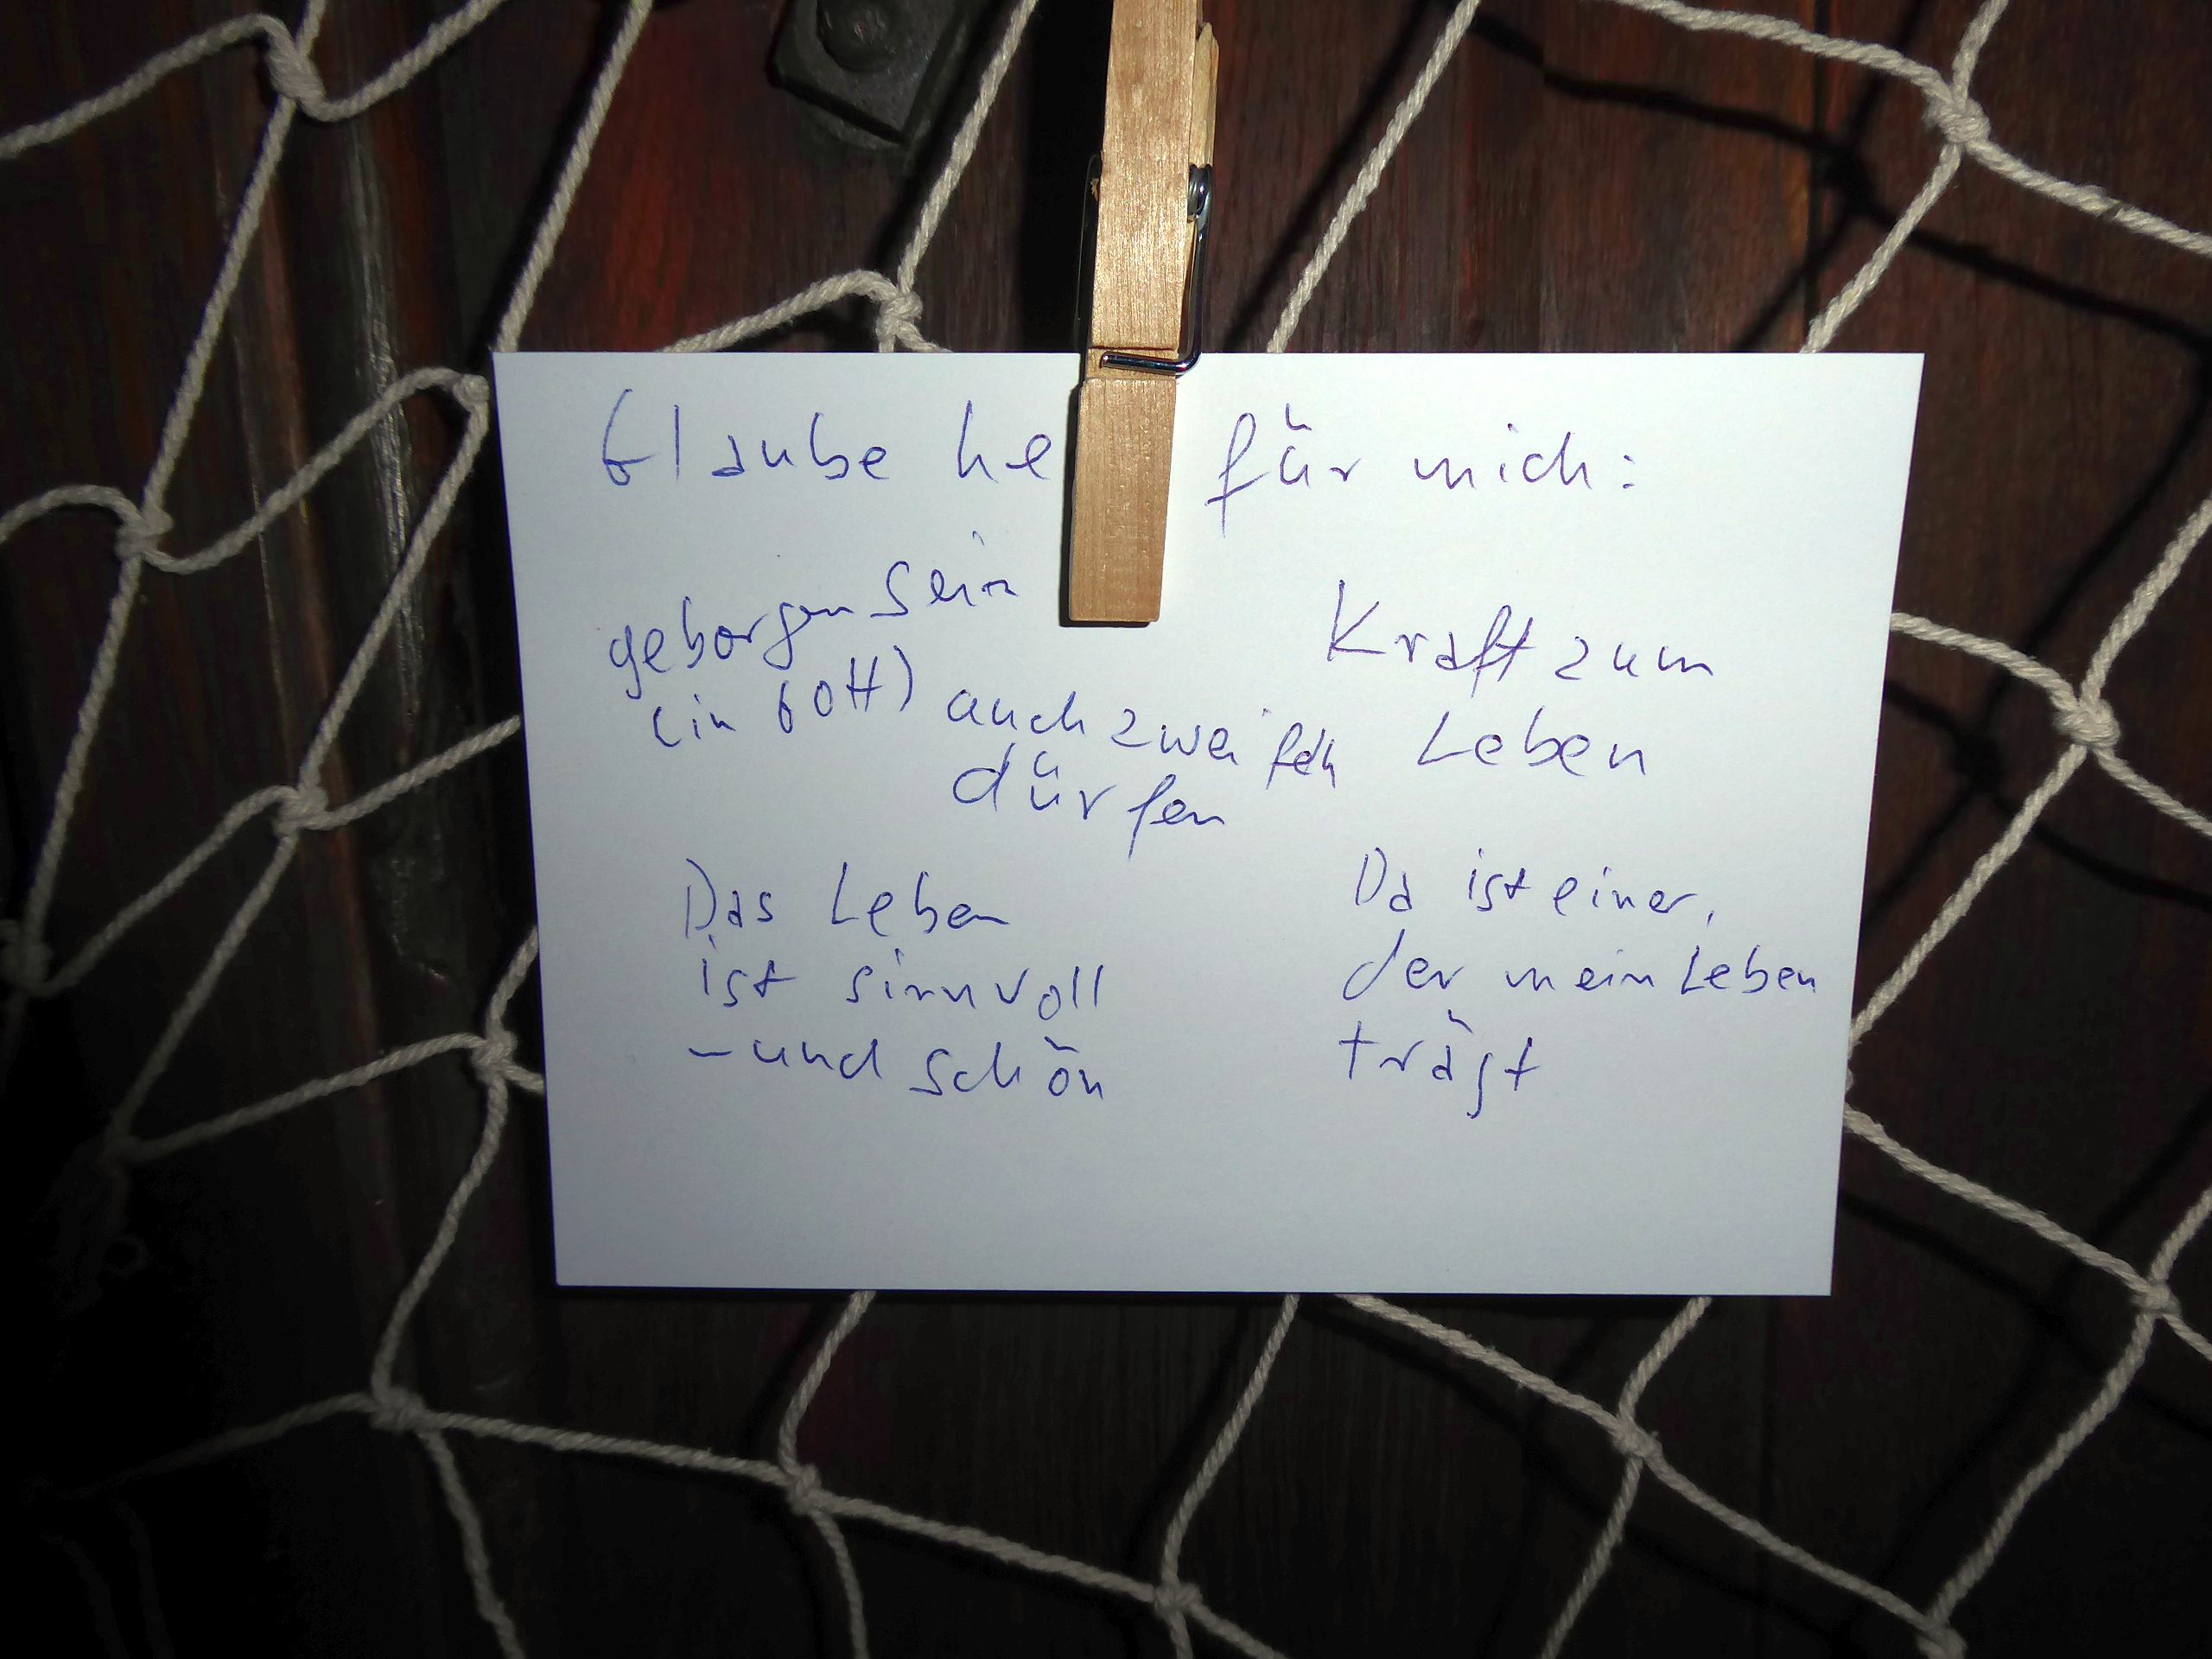 Glaube he für mich:
geborgen sein
(in Gott)
auch zweifeln
dürfen
Kraft zum
Leben
Das Leben
ist sinnvoll
- und schön
Da ist einer,
der mein Leben
trägt